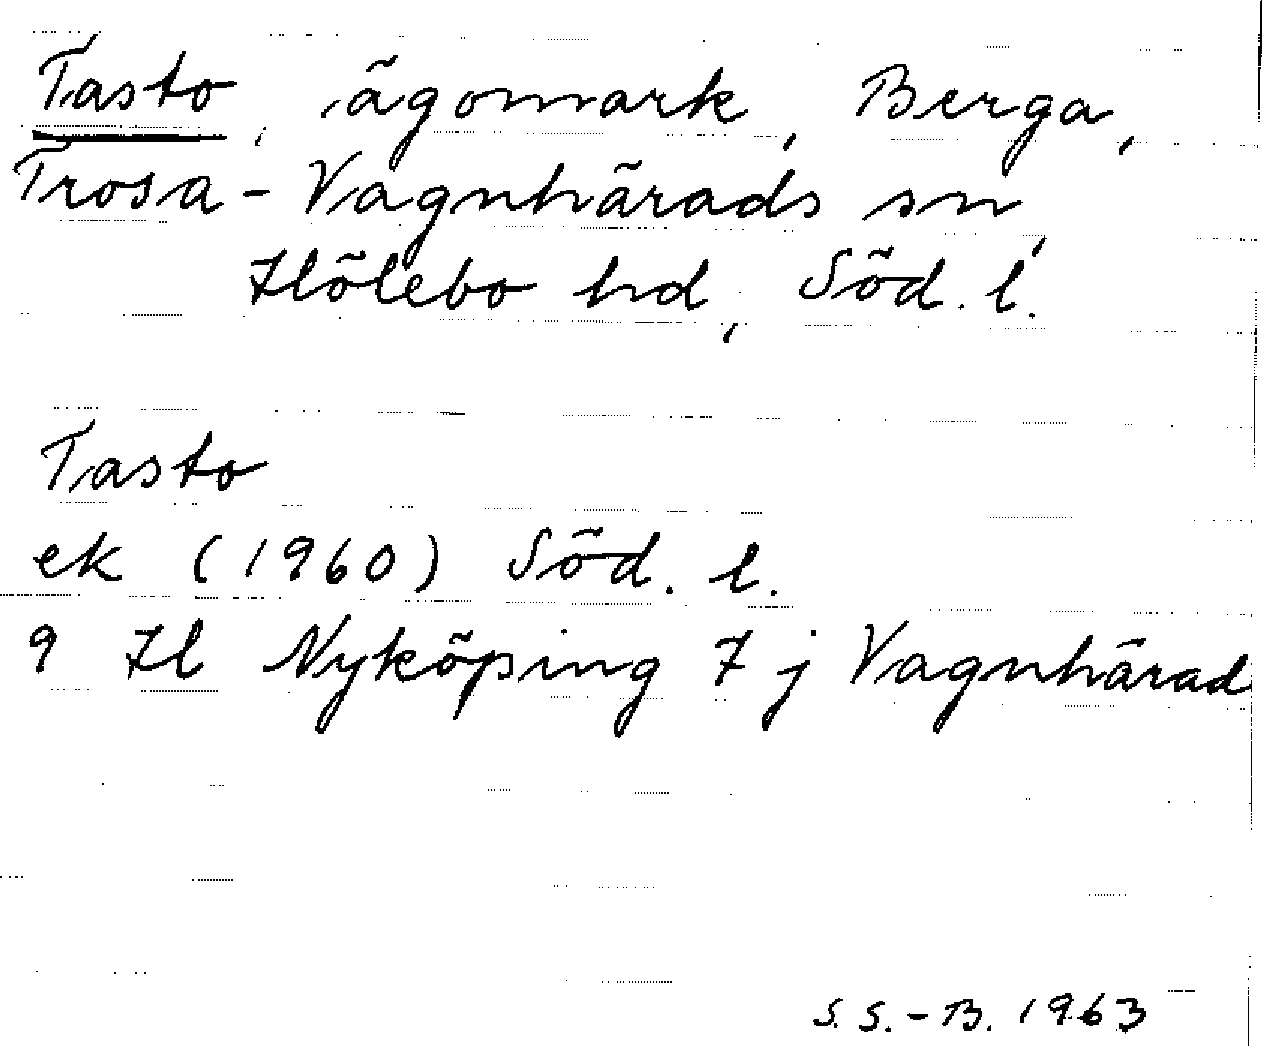 Tasto, ägomark, Berga,
Trosa-Vagnhärads sn,
Hölebo hd, Söd. l.
Tasto
ek (1960) Söd. l.
9 Hl Nyköping 7 j Vagnhärad
S. S.-B. 1963